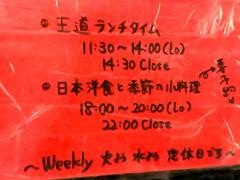 ◉ 王道ランチタイム
11:30〜14:00(Lo)
14:30 Close
◉ 日本洋食と季節の小料理
18:00〜20:00(Lo)
22:00 Close
〜Weekly 火よう 水よう 定休日です〜